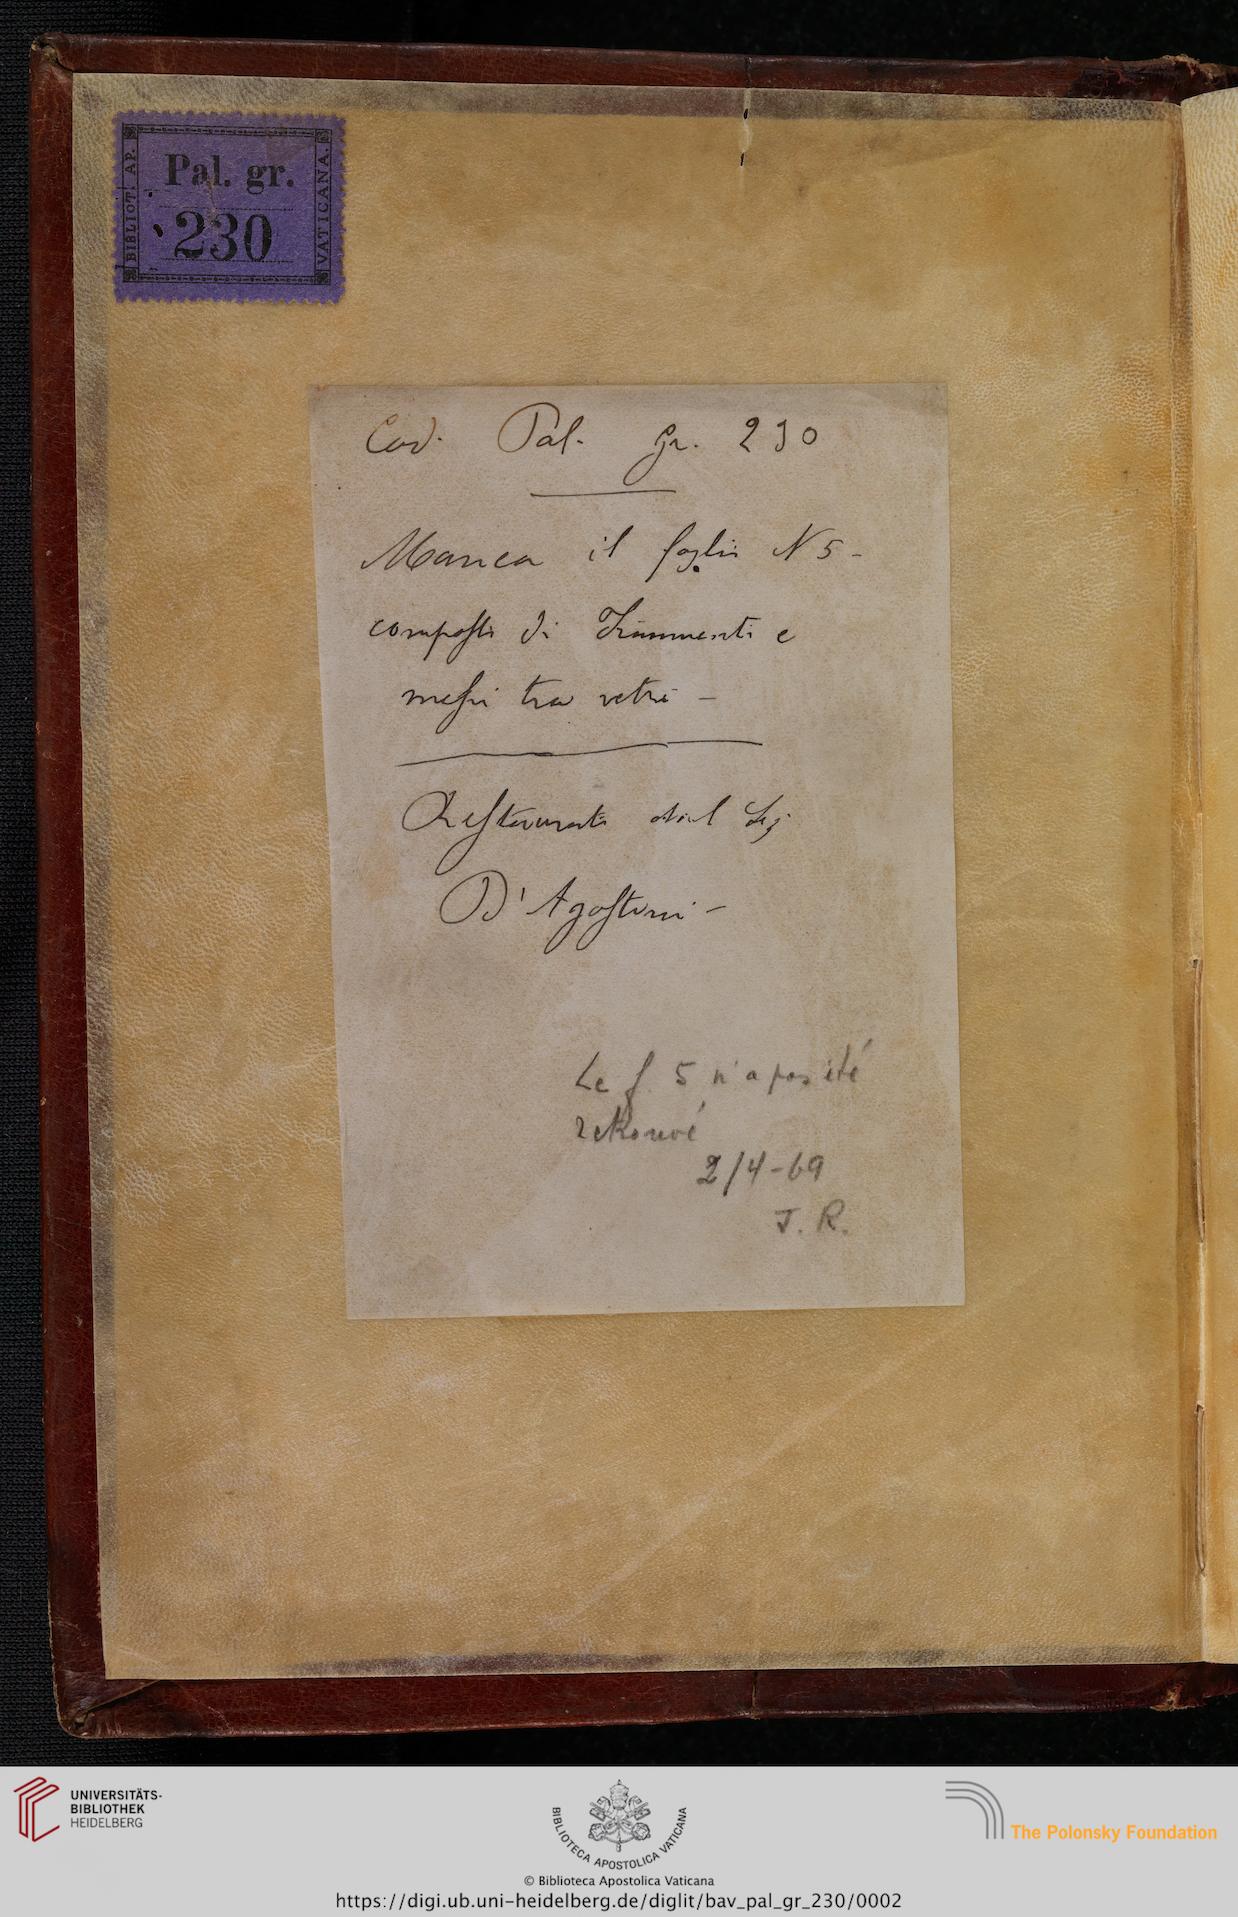 BIBLIOT. AP. VATICANA.
Pal. gr.
230
Cod. Pal. gr. 230
Manca il foglio N 5 -
composto di Frammenti e
messi tra vetri -
Restaurato dal Sig
D'Agostini -
Le f. 5 n'a pas été
retrouvé
2/4-69
J. R.
UNIVERSITÄTS-
BIBLIOTHEK
HEIDELBERG
BIBLIOTECA APOSTOLICA VATICANA
The Polonsky Foundation
© Biblioteca Apostolica Vaticana
https://digi.ub.uni-heidelberg.de/diglit/bav_pal_gr_230/0002